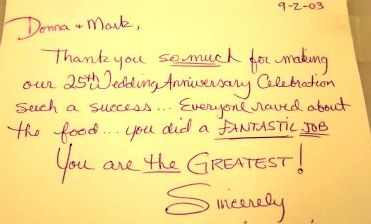 9-2-03
Donna + Mark,
Thank you so much for making
our 25th Wedding Anniversary Celebration
such a success... Everyone raved about
the food... you did a FANTASTIC JOB
You are the GREATEST!
Sincerely